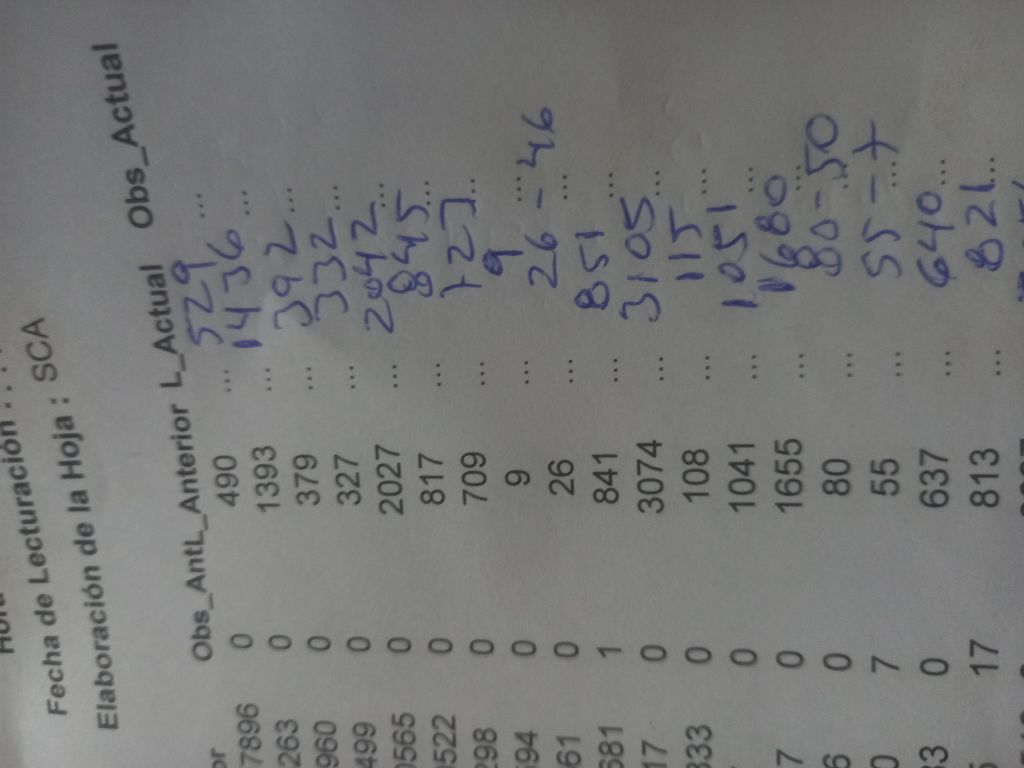 Fecha de Lecturación :
Elaboración de la Hoja : SCA
Obs_AntL_Anterior L_Actual Obs_Actual
7896 0 490 ... 529 ...
263 0 1393 ... 1436 ...
960 0 379 ... 392 ...
499 0 327 ... 332 ...
0565 0 2027 ... 2042 ...
0522 0 817 ... 845 ...
298 0 709 ... 727 ...
594 0 9 ... 9 ...
61 0 26 ... 26 - 46 ...
681 1 841 ... 851 ...
17 0 3074 ... 3105 ...
333 0 108 ... 115 ...
0 1041 ... 1051 ...
7 0 1655 ... 1680 ...
6 0 80 ... 80 - 50 ...
0 7 55 ... 55 - 7 ...
33 0 637 ... 640 ...
17 813 ... 821 ...